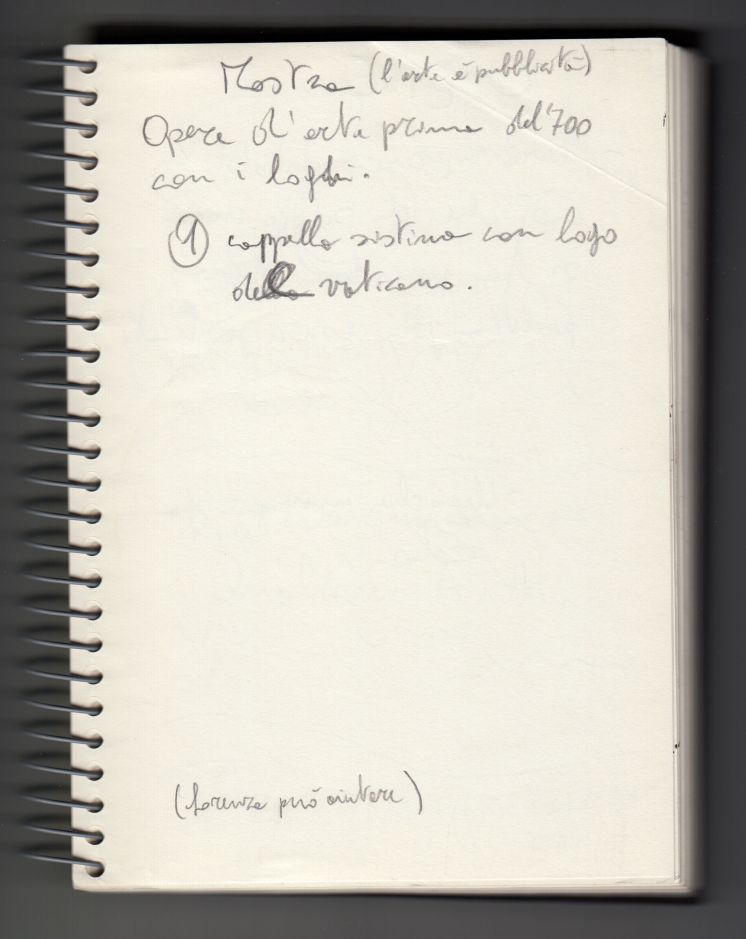 Mostra (l'arte è pubblicità)
Opere d'arte prima del '700
con i loghi.
① cappella sistina con logo
del vaticano.
(Lorenza può aiutare)